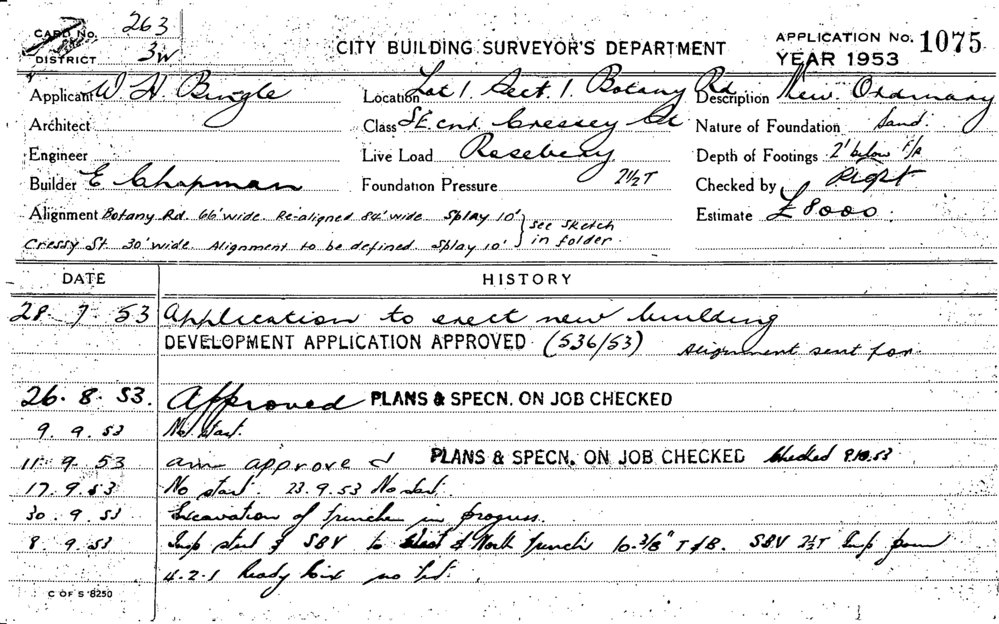 CARD No. 263
DISTRICT 3W
CITY BUILDING SURVEYOR'S DEPARTMENT
APPLICATION No. 1075
YEAR 1953
Applicant W H Bingle
Location Lot 1. Sect. 1. Botany Rd
Description New Ordinary
Architect
Class SE. cnr Cressey St
Nature of Foundation Sand.
Engineer
Live Load Rosebery
Depth of Footings 2' below
Builder E Chapman
Foundation Pressure 2½T
Checked by
Alignment Botany Rd. 66' wide. Re-aligned 84' wide. Splay 10'
Cressy St. 30' wide. Alignment to be defined. Splay 10'
see sketch
in folder.
Estimate £8000.
DATE HISTORY
28. 7. 53 Application to erect new building
DEVELOPMENT APPLICATION APPROVED (536/53) Alignment sent for.
26. 8. 53. Approved PLANS & SPECN. ON JOB CHECKED
9. 9. 53 No start.
11. 9. 53 am approved PLANS & SPECN. ON JOB CHECKED checked 9.10.53
17. 9. 53 No start. 23. 9. 53 No start.
30. 9. 53 Excavation of trenches in progress.
8. 9. 53 Insp steel & SBV to & North trench 10-3/8" T & B. SBV 2½T Insp
4-2-1 Ready Mix no
C OF S 8250